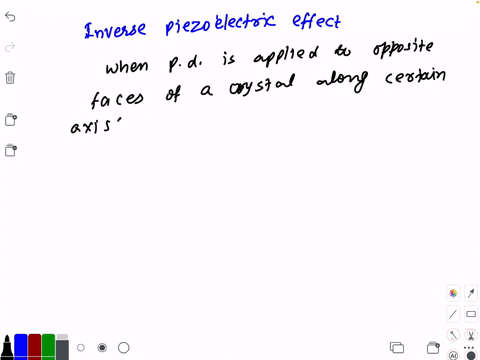 Inverse piezoelectric effect
when p.d. is applied to opposite
faces of a crystal along certain
axis'